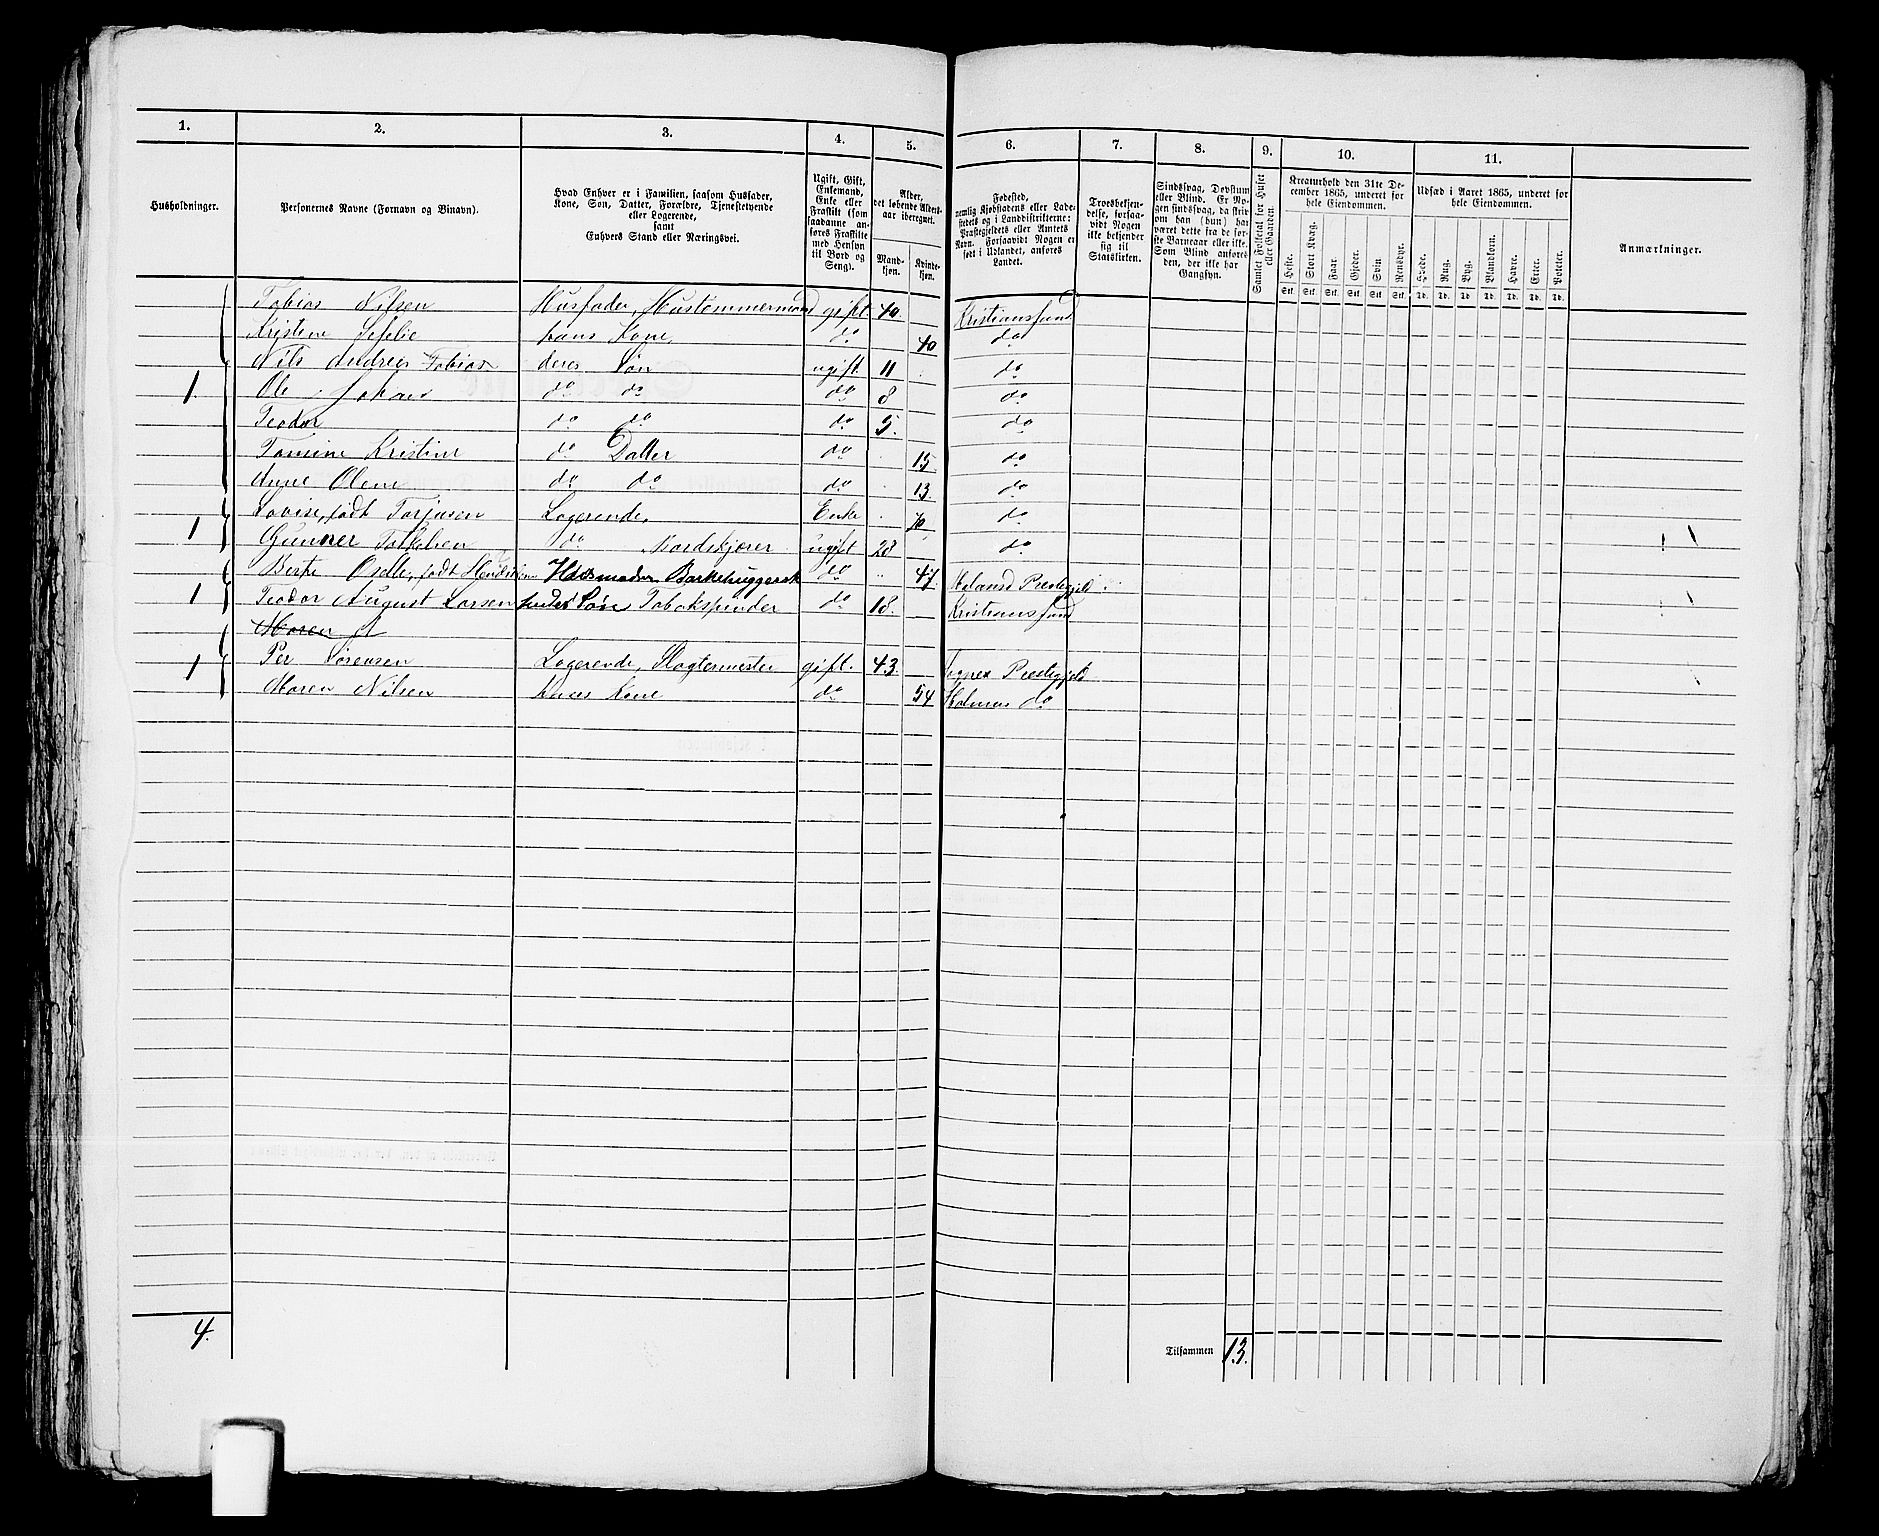 1. 2. 3. 4. 5. 6. 7. 8. 9. 10. 11.
Husholdninger.
Personernes Navne (Fornavn og Binavn).
Hvad Enhver er i Familien, saasom Husfader, Kone, Søn, Datter, Forældre, Tjenestetyende eller Logerende, samt Enhvers Stand eller Næringsvei.
Ugift, Gift, Enkemand, Enke eller Fraskilt (som saadanne anføres Fraskilte med Hensyn til Bord og Seng).
Alder, det løbende Aldersaar iberegnet.
Mandkjøn. Kvindekjøn.
Fødested, nemlig Kjøbstadens eller Ladestedets og i Landdistrikterne: Præstegjeldets eller Amtets Navn. Forsaavidt Nogen er født i Udlandet, anføres Landet.
Troesbekjendelse, forsaavidt Nogen ikke bekjender sig til Statskirken.
Sindssvag, Døvstum eller Blind. Er Nogen sindssvag, da skriv om han (hun) har været dette fra de første Barneaar eller ikke. Som Blind anføres den, der ikke har Gangsyn.
Samlet Folketal for Huset eller Gaarden.
Kreaturhold den 31te December 1865, underet for hele Eiendommen.
Heste. Stort Kvæg. Faar. Gjeder. Svin. Rensdyr.
Stk. Stk. Stk. Stk. Stk. Stk.
Udsæd i Aaret 1865, underet for hele Eiendommen.
Hvede. Rug. Byg. Blandkorn. Havre. Erter. Poteter.
Td. Td. Td. Td. Td. Td. Td.
Anmærkninger.
Tobias Nilsen Husfader, Hustømmermand gift 40. Kristianssund
Kristine Sefelie hans Kone, do 40 do
Nils Andreas Tobias deres Søn ugift. 11 do
1. Ole Johan do do do 8 do
Teodor do do do 5. do
Tomine Kristine do Datter do 15 do
Anne Olene do do do 13. do
Lovise, født Torjusen Logerende, Enke 70 do
1 Gunner Tolkelsen do ugift 28 do
Berte født Husmoder, do 47 Holands Prestegjeld
1 Teodor August Larsen hendes Søn Tobakspinder do 18. Kristianssund
Maren A
1 Per Sørensen Logerende, Slagtermester gift. 43. Prestegjeld
Maren Nilsen hans Kone do 54 do
4. Tilsammen 13.